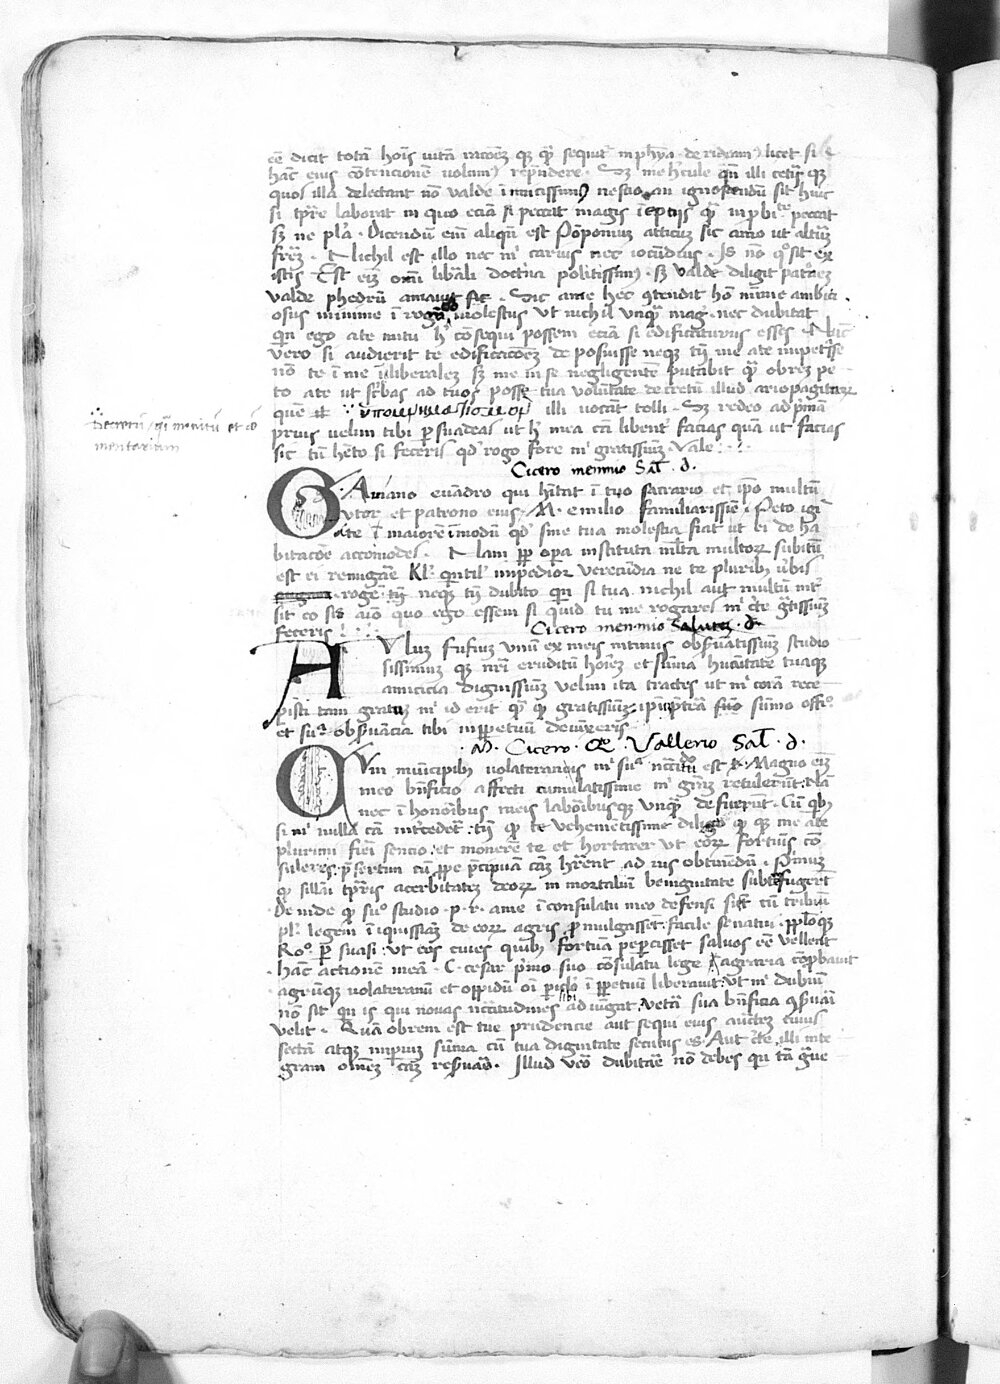 cē dicit totā hoīs uitā racōeʒ qʒ q̄ sequit̄ in ph̄ya deridam licet si
hāc eius cōtencionē uolum repn̄dere . Sʒ meh̓cule q̄n illi cetiq̄ qʒ
quos illa delectant nō valde īmicissimꝰ nescio an ignoscendū sit huic
si tp̄re laborat in quo eciā si peccat magis īeptijs q̄ īnprobite peccat
sʒ ne pla᷒ . Dicendū em̄ aliqn̄ est Pōponium atticum sic amo ut altūʒ
fr̄eʒ . Nichil est illo nec m̓ carius nec iocundius . Is nō qͦ sit ex
istis Est eīʒ om̄i libāli doctīa politissimꝰ . sʒ valde diligit patōeʒ
valde phedrū amauit sic . Sic ame hec 9tendit hō mīme ambici
osus minime ī rogādo molestus vt nichil vnqʒ mag̓ nec dubitat
qn̄ ego ate nutu h̓ cōsequi possem eciā si edificaturus esses . Nūc
vero si audierit te edificacōeʒ deposuisse neqʒ tn̄ me ate impetrasse
nō te ī me īliberalēʒ sʒ me in se negligentē putabit q̄ obreʒ pe
to ate ut scr̄bas ad tuos posse tua volūtate decretū illud ariopagitarꝝ
que īt υπομνηματισμον illi uocāt tolli . Sʒ redeo ad prīmā
prius velim tibi persuadeas ut h̓ mea cā libent̓ facias quā ut facias
sic tn̄ hēto si feceris qd̓ rogo fore m̓ gratissimū . Vale
Decretū / qī monitū et cō
mentarium
Cicero memmio Sal̄ . d .
C . Auiano euādro qui hītat ī tuo sacrario et ip̄o multū
vtor et patrono eius M . emilio familiarissime . Peto igī
ate ī maiorē īmodū qd̓ sine tua molestia fiat ut ei de ha
bitacōe accomodes . Nam ꝓp opa instituta mlta multorꝝ subitū
est ei remigrare Kl̓ . quintil̓ impedior verecūdia ne te pluribꝫ v̓bis
rogeʒ tn̄ neqʒ tn̄ dubito qn̄ si tua nichil aut multū int̄
sit eo sis aīo quo ego essem si quid tu me rogares m̓ cte grātissimū
feceris
Cicero memmio Salutem . d .
Aulus Fufius vnū ex meis intimis obseruātissimū studio
sissimum qʒ nr̄i eruditū hoīeʒ et summa hūānitate tuaqʒ
amicicia dignissimūʒ velim ita tractes ut m̓ corā rece
pisti tam gratū m̓ id erit q̄ q̄ gratissimūʒ ipm̄ p̄trā suo sūmo offīͦ
et suͣ obseruācia tibi in perpetuū deuinxeris
M . Cicero . Q . Vallerio Sal̄ . d .
Cum mūicipibꝫ uolateranis m̓ suͣ nccītudo est . Magno eīʒ
meo bn̄ficio affecti cumulatissime m̓ grām retulerūt . Nā
nec ī honoribus meis laboribusqʒ vnqʒ defuerūt . Cū qbꝫ
si m̓ nulla cā int̓cedet̓ : tn̄ q̄ te vehementissime diligo q̄ qʒ me ate
plurimi fieri sencio et monerē te et hortarer vt eorꝝ fortunis cō
suleres . presertim cū ꝓpe p̄cipuā cāʒ hrent ad ius obtinēdū . Primuʒ
q̄ sillāi tp̄ris acerbitateʒ deorꝝ in mortaliū benignitate subterfugert̄
Deinde q̄ suͦ studio . p . r . ame ī consulatu meo defensi sūt cū tribuī
pl̓ . legem īiquissimāʒ de eorꝝ agris p̄mulgasset : facile senatui . pploqʒ
Roͦ . persuasi : vt eos ciues quibꝫ fortūa pepercisset saluos ēē vellent
hāc actionē meā . C . cesar prīmo suo cōsulatu lege agraria cōprobauit
agrūqʒ uolateranū et oppidū oī periclo ī perpetuū liberauit . Vt m̓ dubiū
nō sit qn̄ is qui nouas nccītudines adiūgat vetā sua bn̄ficia 9seruāī
velit . Quā obrem est tue prudencie aut sequi eius auctēʒ cuius
sectā atqʒ impium sūma cū tua dignitate secutus es . Aut cte illi inte
gram om̄eʒ cāʒ reseruāe . Illud v̓o dubitāe nō debes qn̄ tā grue